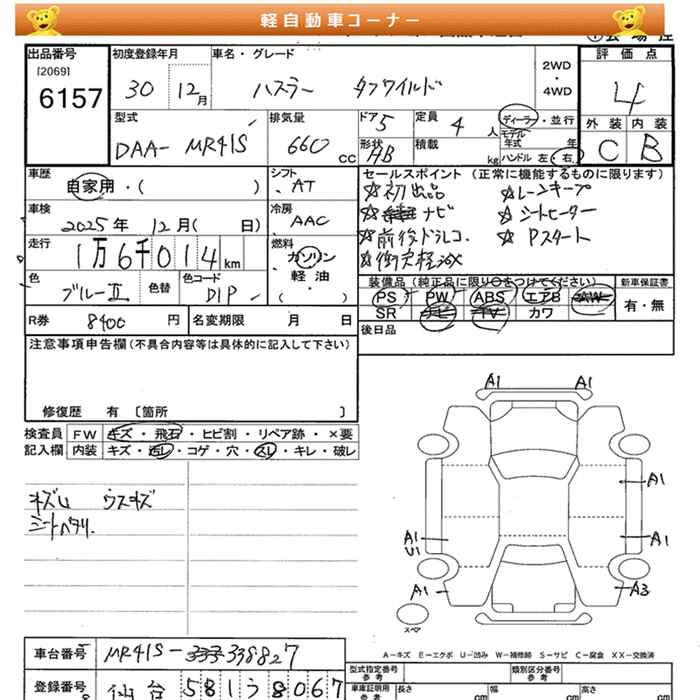 軽自動車コーナー
出品番号
[2069]
6157
初度登録年月
30 12月
車名・グレード
ハスラー タフワイルド
2WD
・
4WD
評価点
4
外装 内装
C B
型式
DAA- MR41S
排気量
660 cc
ドア
5
定員
4 人
形状
HB
積載
kg
ディーラー・並行
モデル
年式 年
ハンドル 左・右
車歴
自家用・( )
シフト
AT
車検
2025年 12月( 日)
冷房
AAC
走行
1万6千014km
燃料
ガソリン
軽油
( )
色
ブルーII
色替
色コード
D1P -
R券 8400 円
名変期限 月 日
セールスポイント (正常に機能するものに限ります)
☆初出品 ☆レーンキープ
☆ナビ ☆シートヒーター
☆前後ドラレコ ☆Pスタート
☆衝突軽減
装備品(純正品に限り○をつけてください)
PS PW ABS エアB AW
SR ナビ TV カワ
新車保証書
有・無
後日品
注意事項申告欄(不具合内容等は具体的に記入して下さい)
修復歴 有 〔箇所 〕
検査員 FW キズ・飛石・ヒビ割・リペア跡・×要
記入欄 内装 キズ・汚レ・コゲ・穴・スレ・キレ・破レ
キズU ウスキズ
シートヘタリ.
A1 A1
A1
A1
U1
A1
A1
A3
スペア
A-キズ E-エクボ U-凹み W-補修跡 S-サビ C-腐食 XX-交換済
車台番号 MR41S-338827
登録番号 仙台 581 ろ 8067
型式指定番号
参考
類別区分番号
参考
車庫証明用
参考
長さ cm
幅 cm
高さ cm